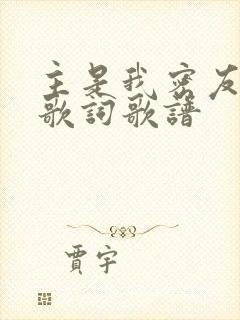 主是我密友
歌詞歌譜
賈宇